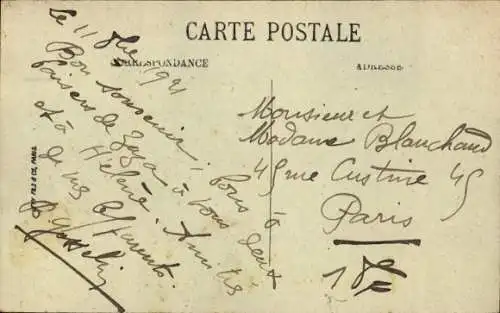 CARTE POSTALE
CORRESPONDANCE
ADRESSE
Le 11 8bre 1921
Bon souvenir, bons
baisers de Zaza à vous deux
et à Hélène. Amitiés
de mes parents.
Monsieur et
Madame Blanchaud
45 rue Custine 45
Paris
18e